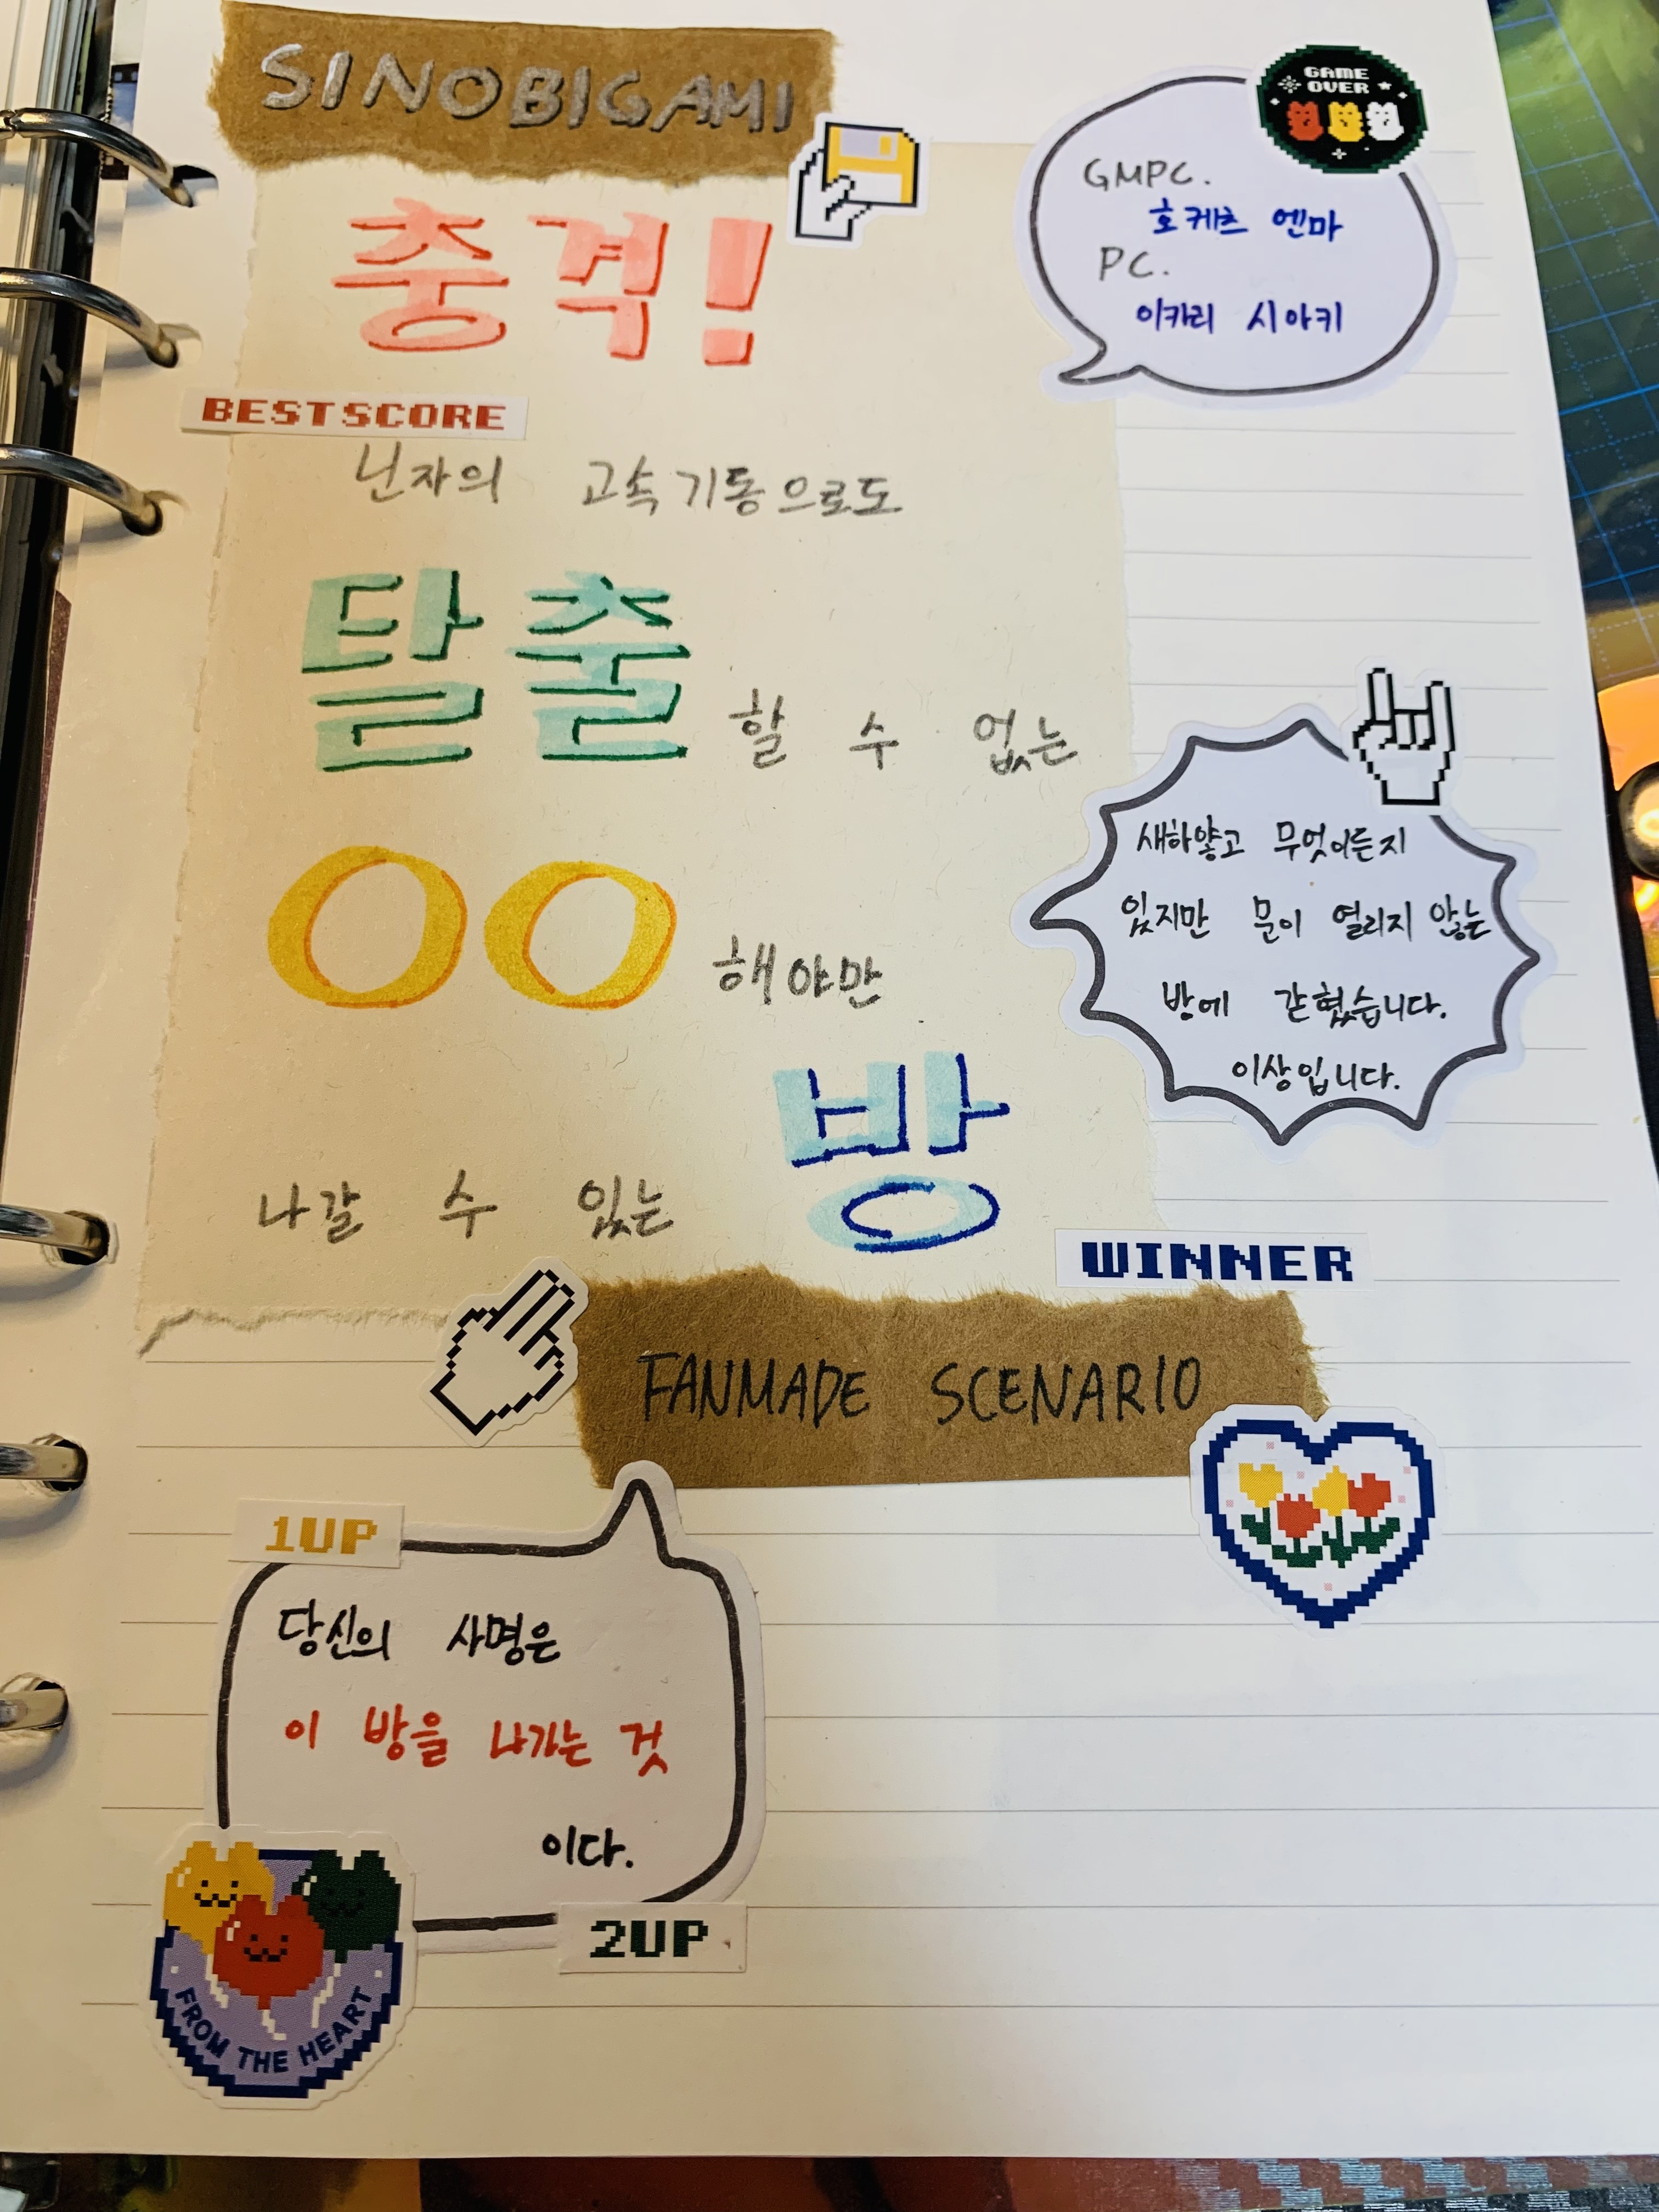 SINOBIGAMI
충격!
GAME
OVER
GMPC.
호케츠 엔마
PC.
이카리 시아키
BEST SCORE
닌자의 고속기동으로도
탈출할 수 없는
OO해야만
나갈 수 있는 방
새하얗고 무엇이든지
있지만 문이 열리지 않는
방에 갇혔습니다.
이상입니다.
WINNER
FANMADE SCENARIO
1UP
당신의 사명은
이 방을 나가는 것
이다.
2UP
FROM THE HEART